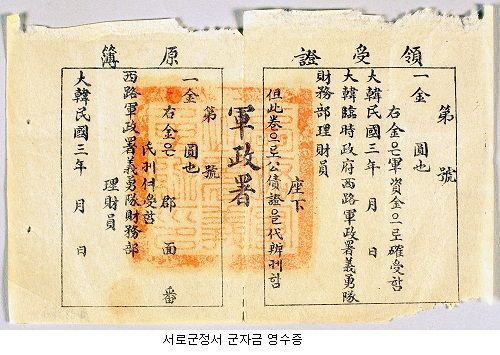 領受證
第 號
一金 圓也
右金은軍資金으로確受함
大韓民國三年 月 日
大韓臨時政府西路軍政署義勇隊
財務部理財員
座下
但此卷으로公債證을代辦케함
軍政署
原簿
第 號
一金 圓也
右金은 郡 面 番
氏게셔受함
西路軍政署義勇隊財務部
理財員
大韓民國三年 月 日
서로군정서 군자금 영수증